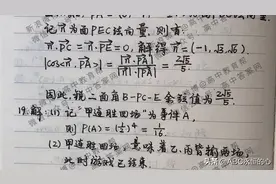 记n⃗为面PEC法向量.则有
n⃗·PC⃗=n⃗·PE⃗=0,解得n⃗=(-1,√3,√3).
|cos<n⃗,PA⃗>|=|n⃗·PA⃗|/|n⃗||PA⃗|=2√5/5.
因此,锐二面角B-PC-E余弦值为2√5/5.
19.解:(1)记"甲连胜四场"为事件A,
则P(A)=(1/2)⁴=1/16.
(2)甲连胜四场,意味着乙、丙皆输两场,
此时游戏已结束.
头条 @ABC永恒的心